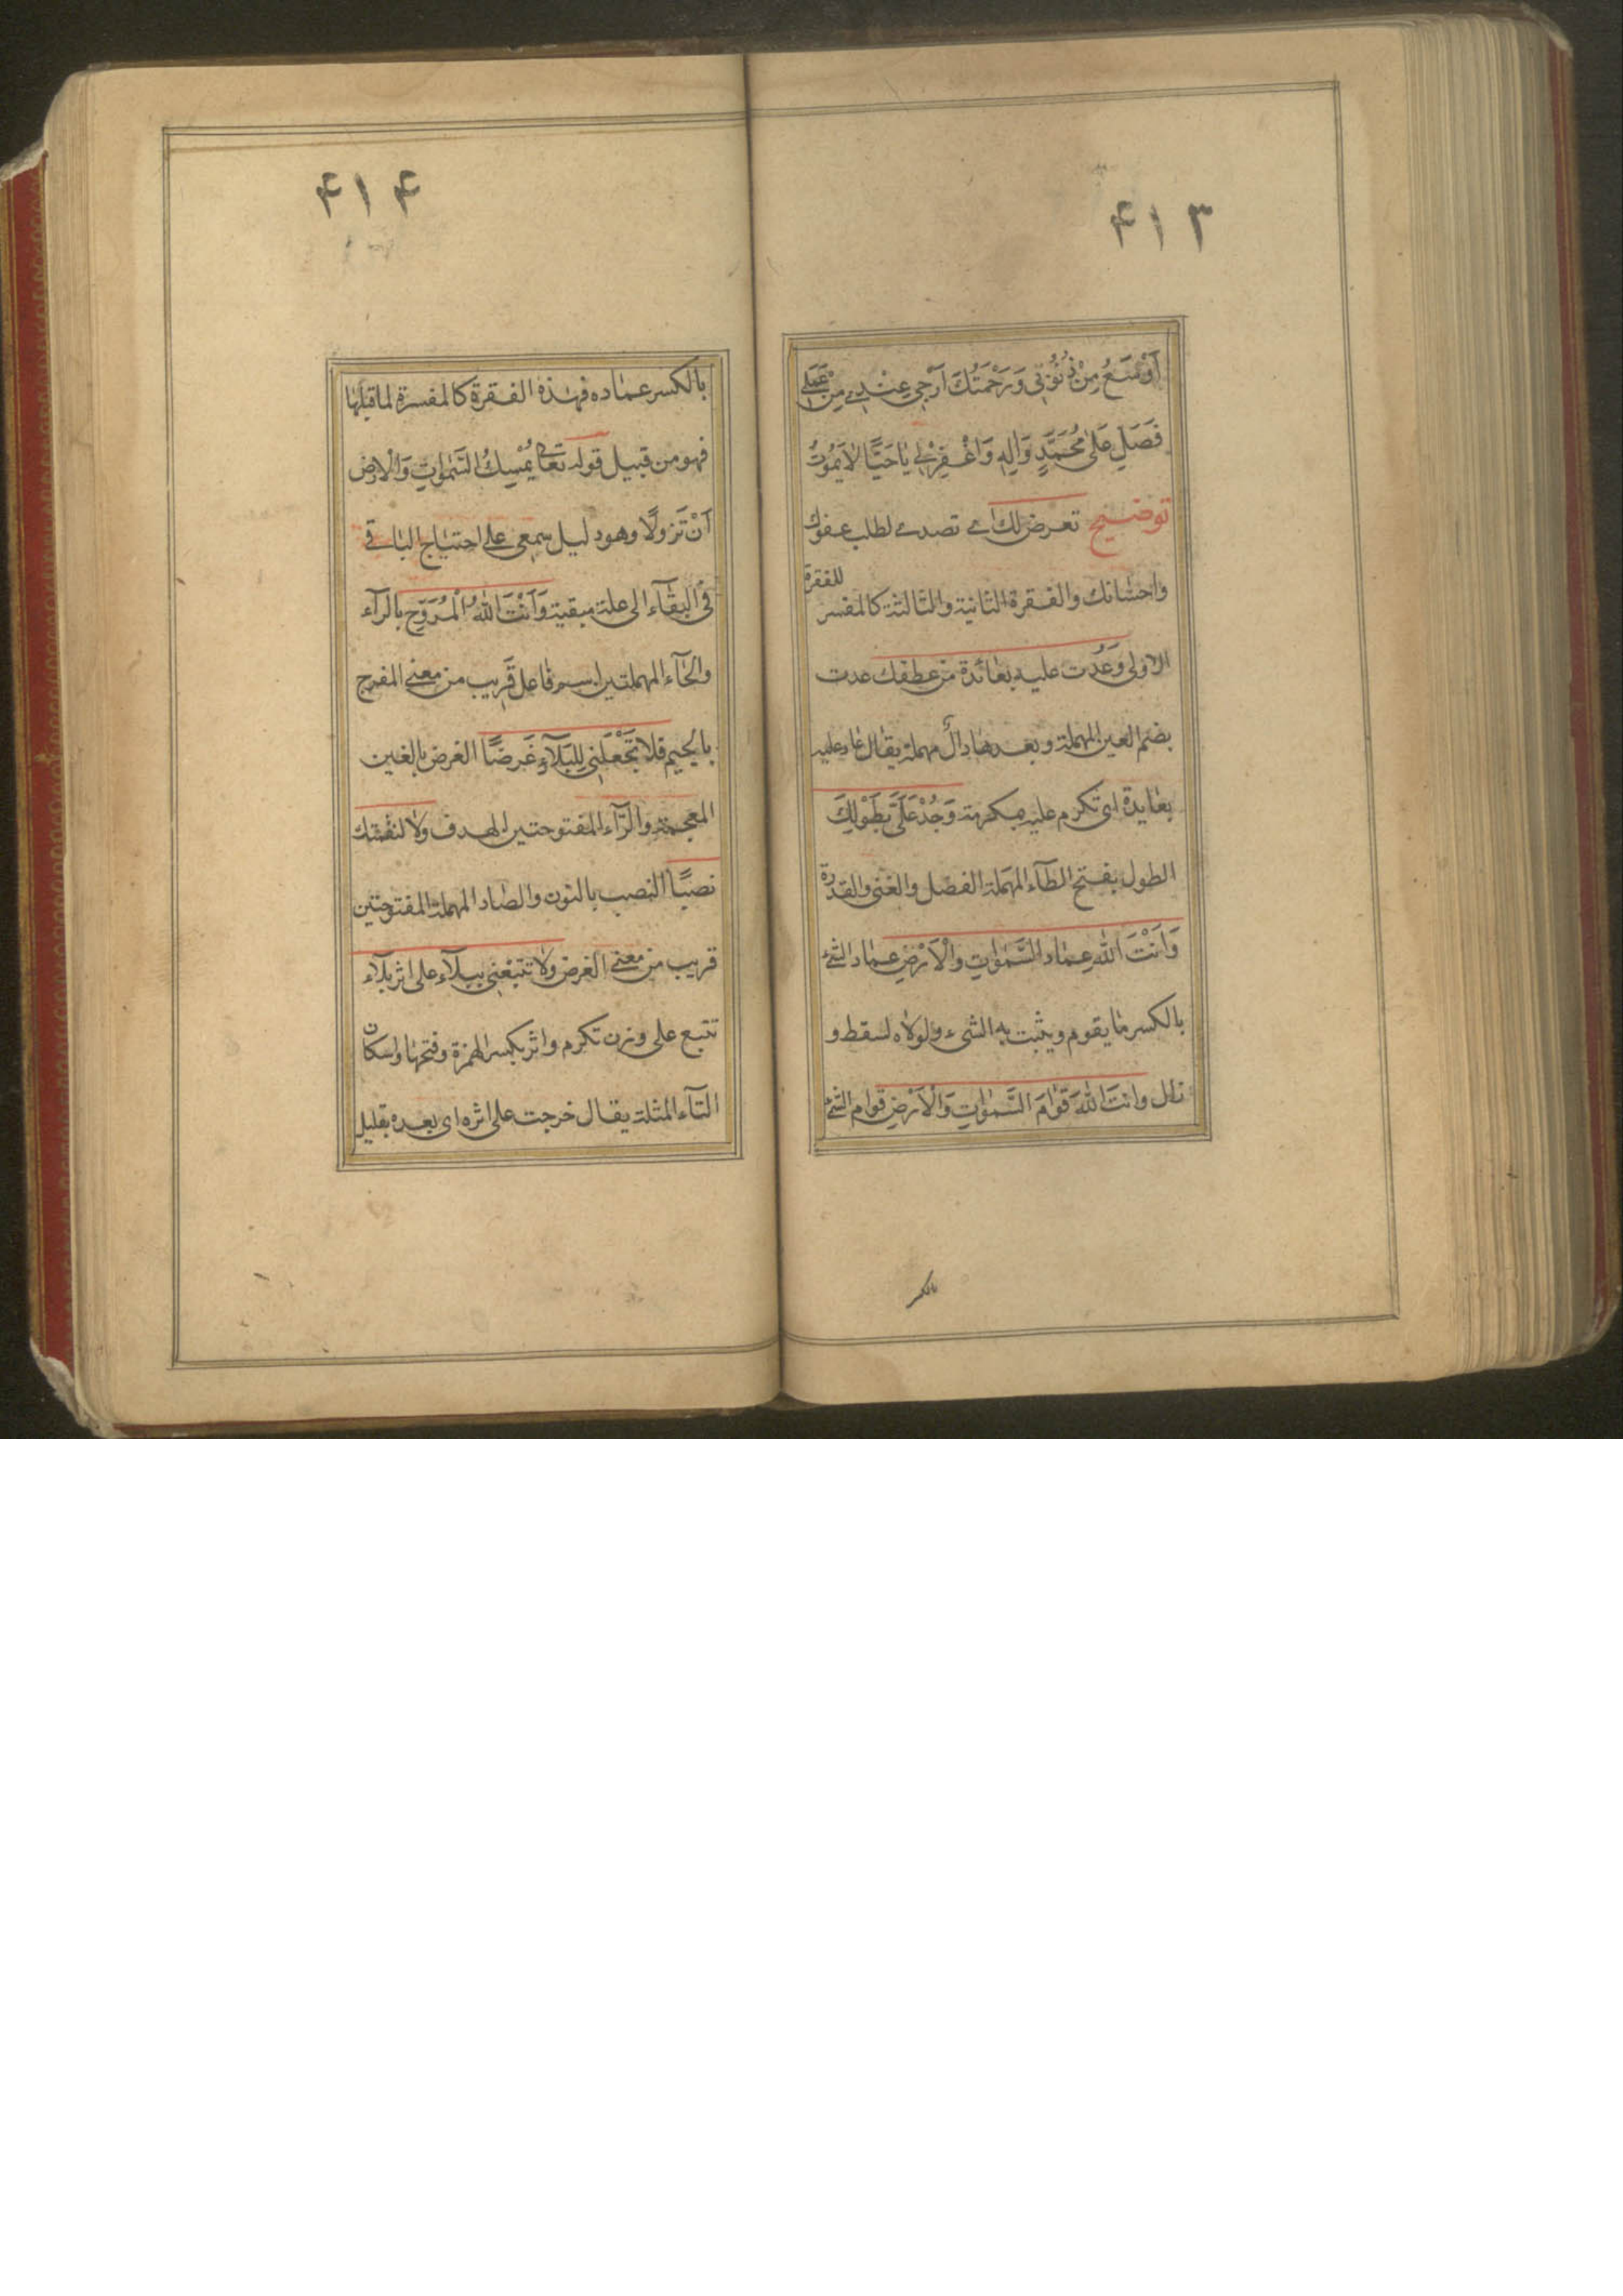 ۴۱۳
اَوْسَعُ مِنْ ذُنُوُبي وَرَحْمَتُكَ اَرْجي عِنْدي مِنْ عَمَلي
فَصَلِّ عَلى مُحَمَّدٍ وَالِهِ وَاغْفِرْلي يا حَيًّا لا يَمُوتُ
توضيح تعرض لك اے تصدے لطلب عفوك
واحسانك والفقرة الثانية والثالثة كالمفسر للفقرة
الاولى وَعُدت عليه بعائدة من عطفك عدت
بضم العين المهملة وبعدها دال مهملة يقال عاد عليه
بعايدة اى تكرم عليه بمكرمة وَجُدْ عَلَيَّ بِطَوْلِكَ
الطول بفتح الطآء المهملة الفضل والغنى والقدرة
وَاَنْتَ اللهُ عِماد السَّمواتِ والْاَرْضِ عماد الشئ
بالكسر ما يقوم ويثبت به الشىء ولولاه لسقط و
زال وانتَ اللهُ قَوامَ السَّمواتِ وَالْاَرْضِ قوام الشئ
بالكسر
۴۱۴
بالكسر عماده فهذه الفقرة كالمفسرة لما قبلها
فهو من قبيل قوله تعالى يُمْسِكُ السَّمواتِ وَالْارضَ
اَنْ تَزولًا وهو دليل سمعى على احتياج الباقے
في البقآء الى علة مبقية وَاَنْتَ اللهُ الْمُرَوِّحِ بالرآء
والحآء المهملتين اسم فاعل قريب من معنے المفرج
بالجيم فلا تَجْعَلْني لِلبَلآءِ غَرَضًا الغرض بالغين
المعجمة والرّآء المفتوحتين الهدف ولا لنقمتك
نصبًا النصب بالنون والصاد المهملة المفتوحتين
قريب من معنے الغرض ولا تتبعني ببلآء على اثر بلآء
تتبع على وزن تكرم واثر بكسر الهمزة وفتحها واسكان
الثآء المثلثة يقال خرجت على اثره اى بعده بقليل